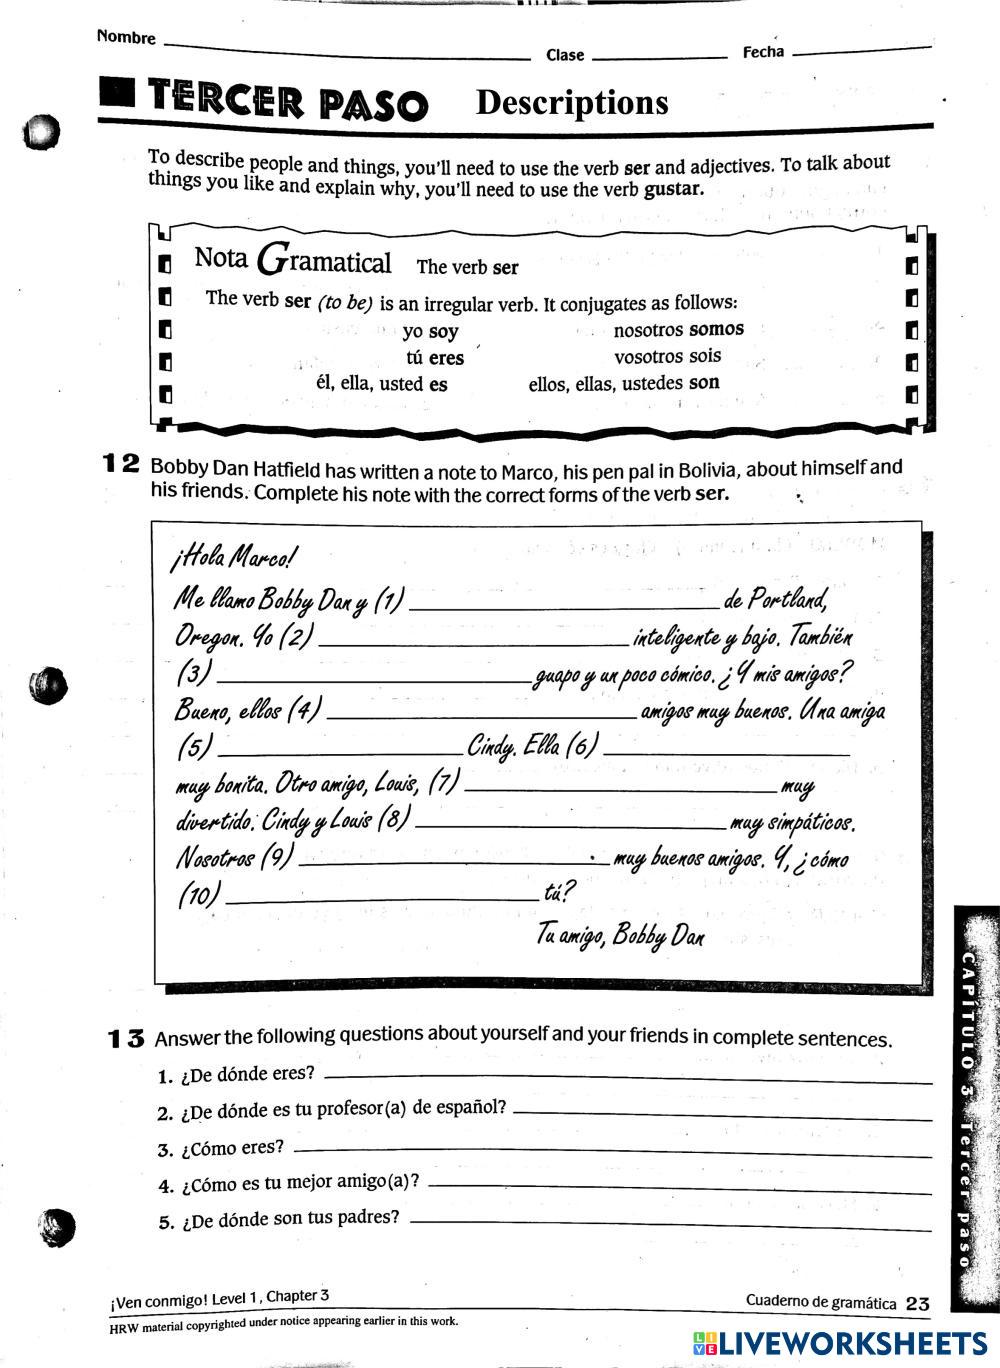 Nombre Clase Fecha
TERCER PASO Descriptions
To describe people and things, you'll need to use the verb ser and adjectives. To talk about
things you like and explain why, you'll need to use the verb gustar.
Nota Gramatical The verb ser
The verb ser (to be) is an irregular verb. It conjugates as follows:
yo soy nosotros somos
tú eres vosotros sois
él, ella, usted es ellos, ellas, ustedes son
12 Bobby Dan Hatfield has written a note to Marco, his pen pal in Bolivia, about himself and
his friends. Complete his note with the correct forms of the verb ser.
¡Hola Marco!
Me llamo Bobby Dan y (1) de Portland,
Oregon. Yo (2) inteligente y bajo. También
(3) guapo y un poco cómico. ¿Y mis amigos?
Bueno, ellos (4) amigos muy buenos. Una amiga
(5) Cindy. Ella (6)
muy bonita. Otro amigo, Louis, (7) muy
divertido. Cindy y Louis (8) muy simpáticos.
Nosotros (9) muy buenos amigos. Y, ¿cómo
(10) tú?
Tu amigo, Bobby Dan
13 Answer the following questions about yourself and your friends in complete sentences.
1. ¿De dónde eres?
2. ¿De dónde es tu profesor(a) de español?
3. ¿Cómo eres?
4. ¿Cómo es tu mejor amigo(a)?
5. ¿De dónde son tus padres?
CAPÍTULO 3 Tercer paso
¡Ven conmigo! Level 1, Chapter 3 Cuaderno de gramática 23
HRW material copyrighted under notice appearing earlier in this work.
LIVE LIVEWORKSHEETS